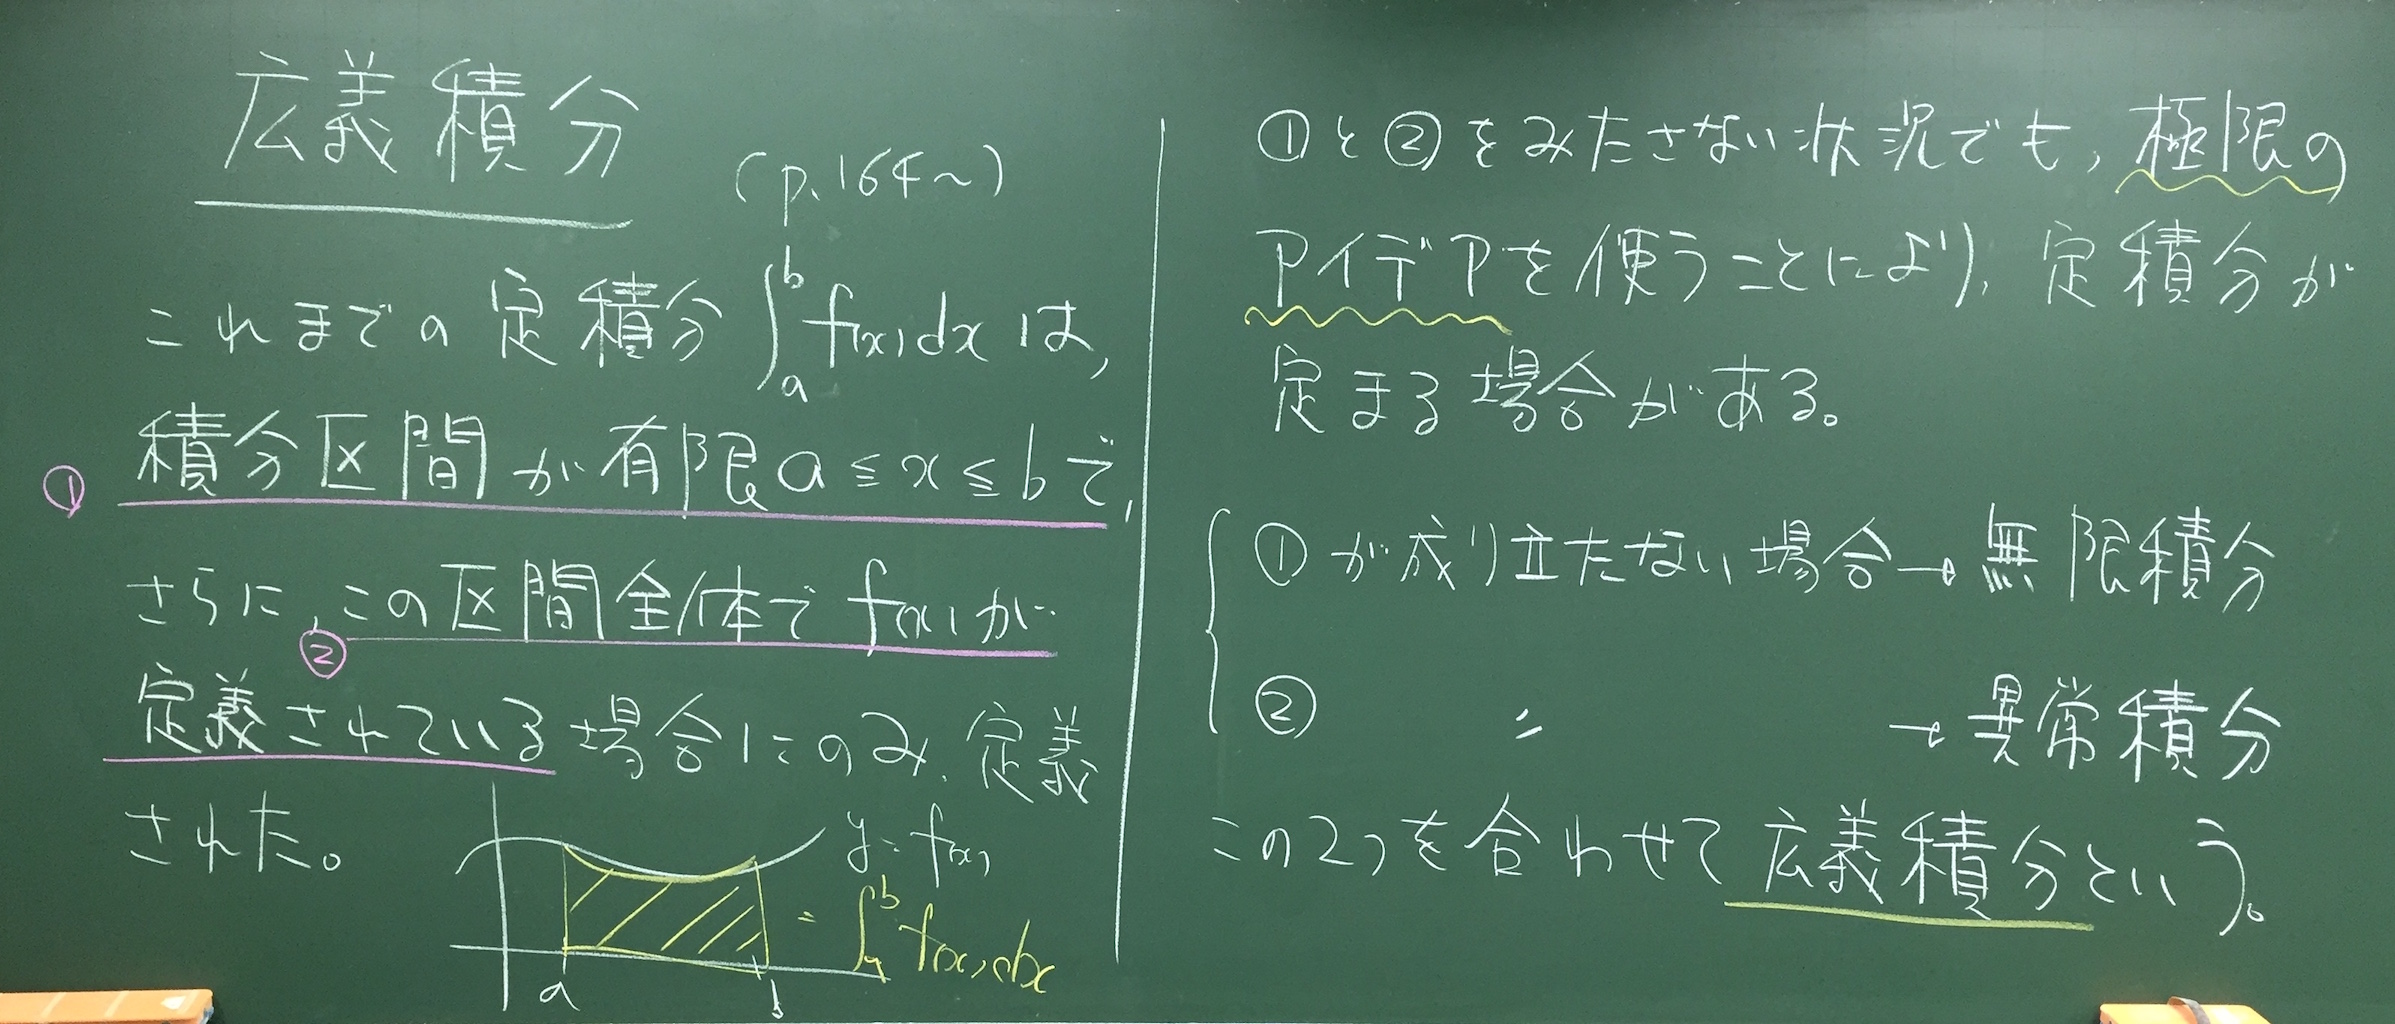 広義積分
(p.164~)
これまでの定積分 ∫_a^b f(x)dx は,
① 積分区間が有限 a≦x≦b で,
さらに,この区間全体で f(x) が
②
定義されている場合にのみ,定義
された。
y=f(x)
= ∫_a^b f(x)dx
a b
①と②をみたさない状況でも,極限の
アイデアを使うことにより,定積分が
定まる場合がある。
①が成り立たない場合→無限積分
② 〃 →異常積分
この2つを合わせて広義積分という。